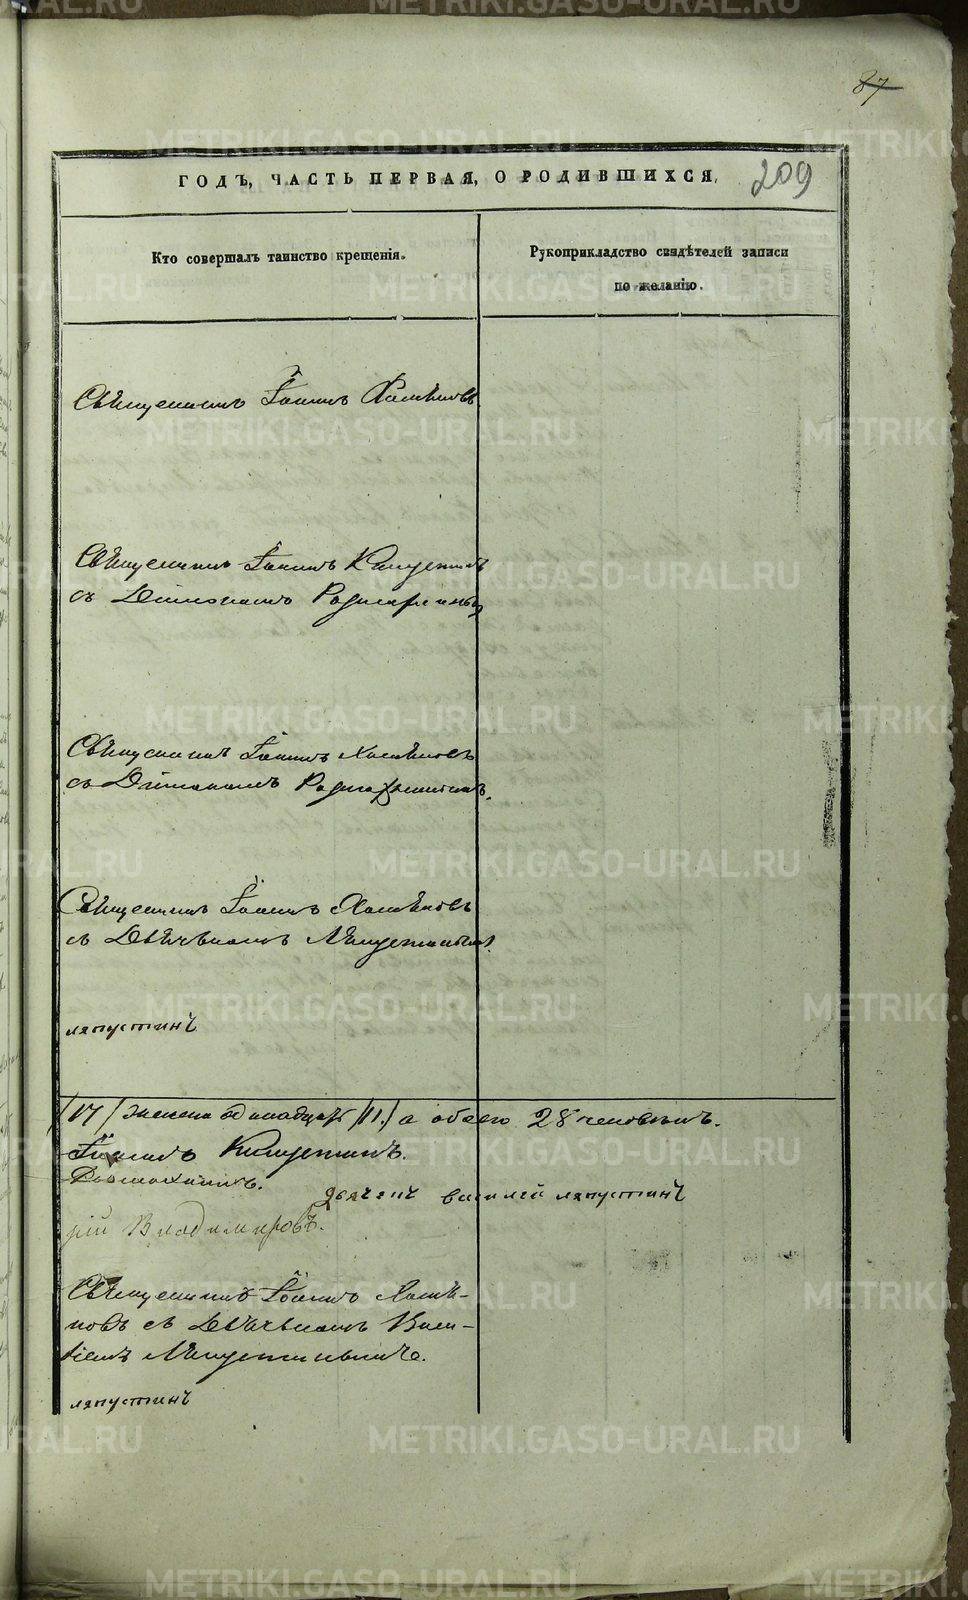 87
ГОДЪ, ЧАСТЬ ПЕРВАЯ, О РОДИВШИХСЯ.
209
Кто совершалъ таинство крещенія.
Рукоприкладство свидѣтелей записи
по желанію.
Священникъ Іоаннъ Хомяковъ
Священникъ Іоаннъ
съ Діакономъ
Священникъ Іоаннъ Хомяковъ
съ Діакономъ
Священникъ Іоаннъ Хомяковъ
съ Дьячкомъ Ляпустинымъ
ляпустинъ
/17/ женска одинадцать /11./ а обоего 28 человѣкъ.
Іоаннъ
дьячекъ василей ляпустинъ
рій Владимировъ.
Священникъ Іоаннъ Хомя-
ковъ съ Дьячкомъ Васи-
ліемъ
ляпустинъ
METRIKI.GASO-URAL.RU